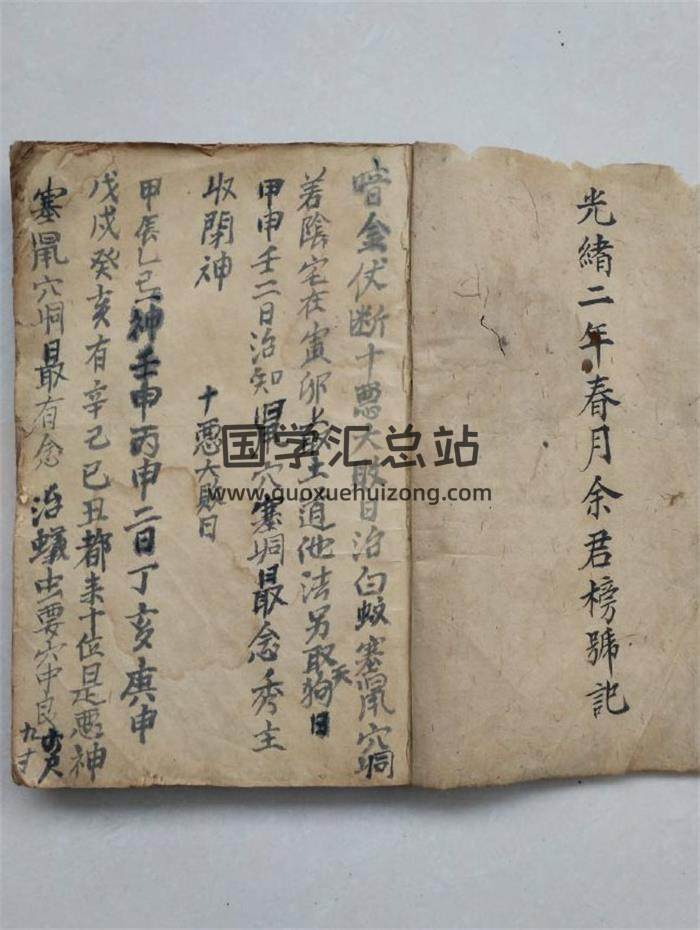 光緒二年春月余君榜號記
暗金伏断十悪大敗日治白蚁塞鼠穴垌
若陰宅在寅卯 土道他法另取天狗日
甲申壬二日治知鼠穴塞垌最念秀主
收閉神 十悪大敗日
甲辰乙巳神壬申丙申二日丁亥庚申
戊戌癸亥有辛己巳丑都来十位是悪神
塞鼠穴垌最有念 治蟻虫要穴中良 六尺九寸
国学汇总站
www.guoxuehuizong.com